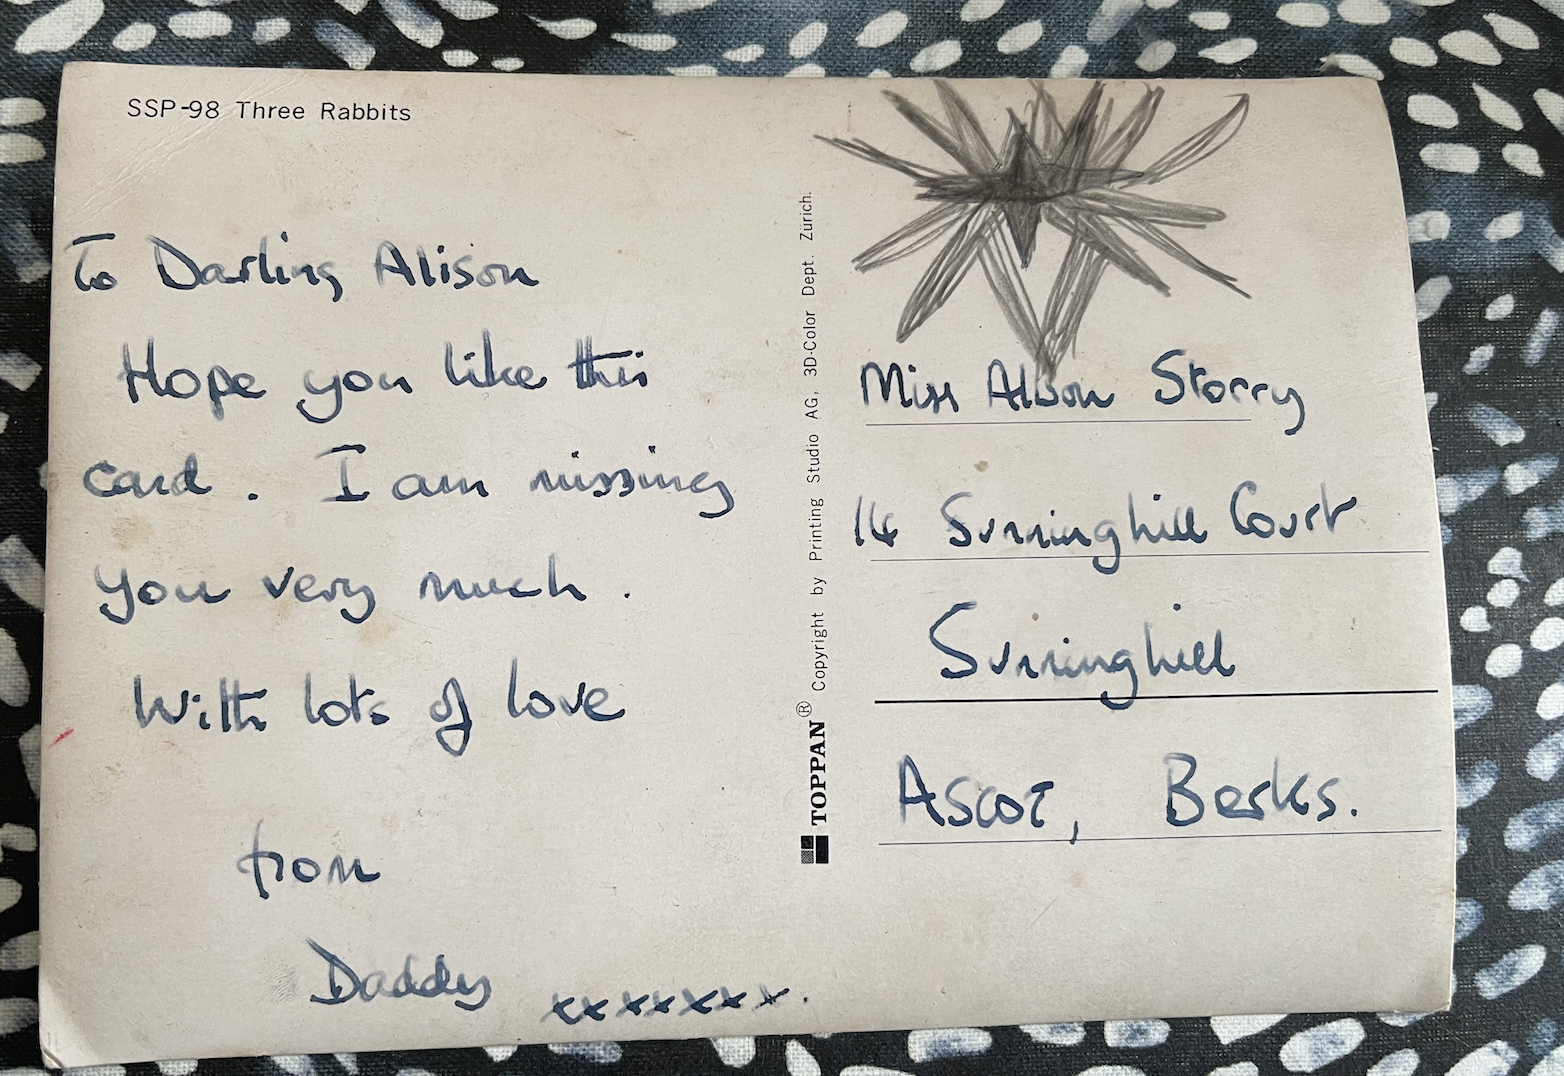 SSP-98 Three Rabbits
To Darling Alison
Hope you like this
card. I am missing
you very much.
With lots of love
from
Daddy xxxxxxx.
TOPPAN® Copyright by Printing Studio AG, 3D-Color Dept. Zürich.
Miss Alison Storry
14 Sunninghill Court
Sunninghill
Ascot, Berks.